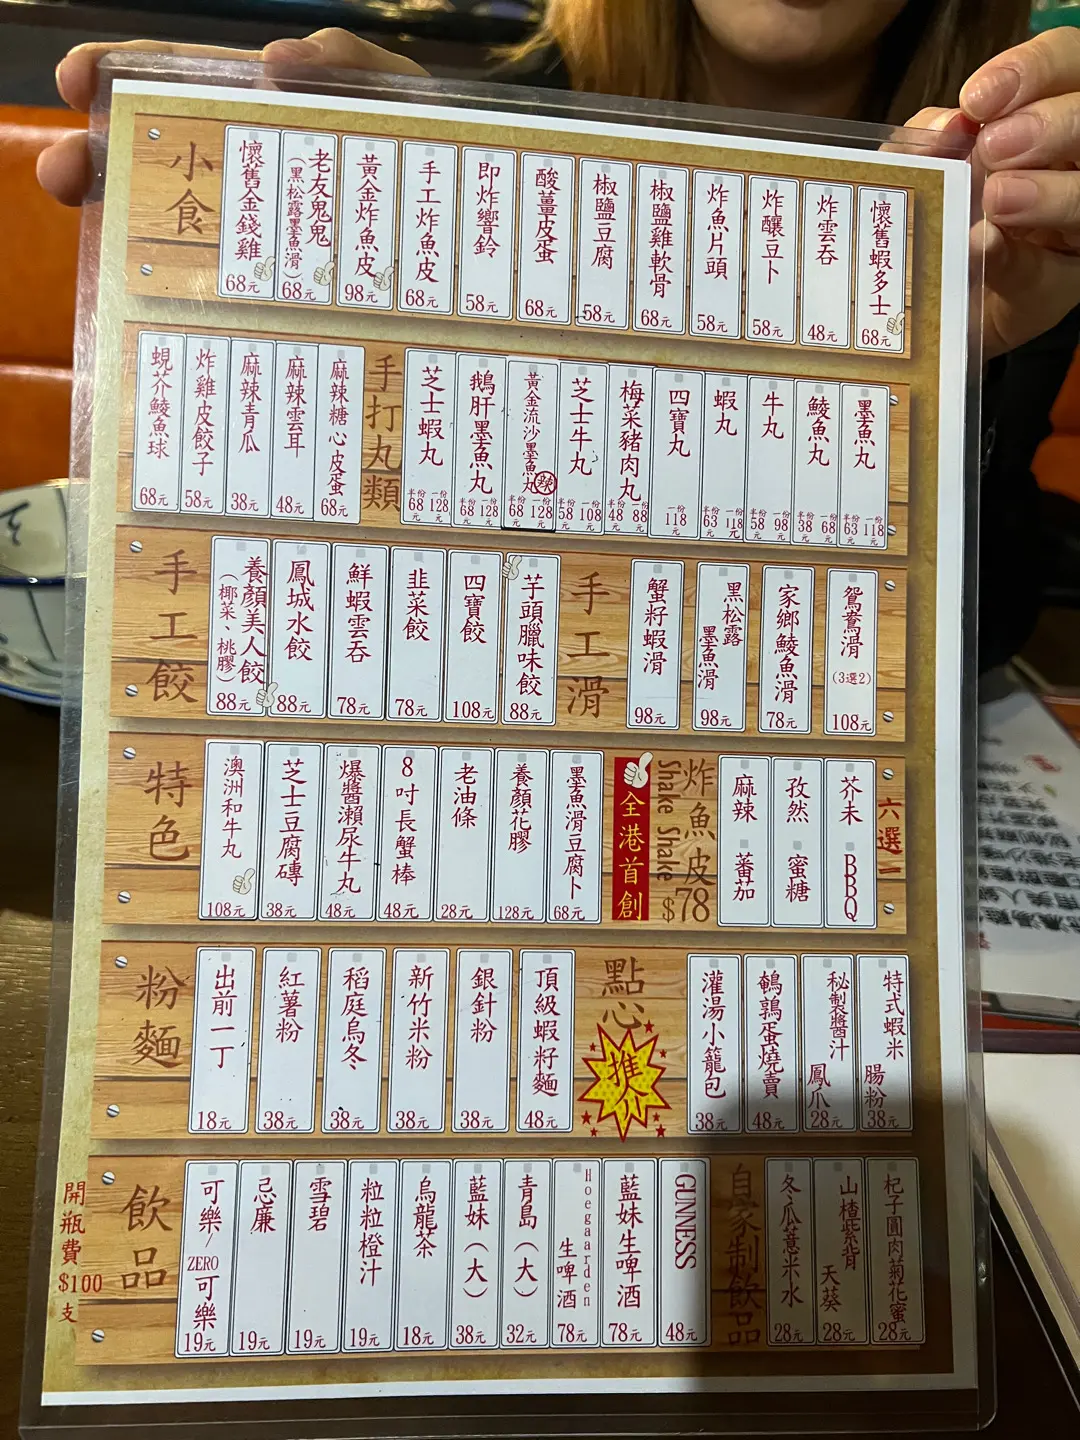 小食
懷舊金錢雞
68元
老友鬼鬼
(黑松露墨魚滑)
68元
黃金炸魚皮
98元
手工炸魚皮
68元
即炸響鈴
58元
酸薑皮蛋
68元
椒鹽豆腐
58元
椒鹽雞軟骨
68元
炸魚片頭
58元
炸釀豆卜
58元
炸雲吞
48元
懷舊蝦多士
68元
蜆芥鯪魚球
68元
炸雞皮餃子
58元
麻辣青瓜
38元
麻辣雲耳
48元
麻辣糖心皮蛋
68元
手打丸類
芝士蝦丸
半份 68元 一份 128元
鵝肝墨魚丸
半份 68元 一份 128元
黃金流沙墨魚丸
辣
半份 68元 一份 128元
芝士牛丸
半份 58元 一份 108元
梅菜豬肉丸
半份 48元 一份 88元
四寶丸
一份 118元
蝦丸
半份 63元 一份 118元
牛丸
半份 58元 一份 98元
鯪魚丸
半份 38元 一份 68元
墨魚丸
半份 63元 一份 118元
手工餃
養顏美人餃
(椰菜、桃膠)
88元
鳳城水餃
88元
鮮蝦雲吞
78元
韭菜餃
78元
四寶餃
108元
芋頭臘味餃
88元
手工滑
蟹籽蝦滑
98元
黑松露
墨魚滑
98元
家鄉鯪魚滑
78元
鴛鴦滑
(3選2)
108元
特色
澳洲和牛丸
108元
芝士豆腐磚
38元
爆醬瀨尿牛丸
48元
8吋長蟹棒
48元
老油條
28元
養顏花膠
128元
墨魚滑豆腐卜
68元
全港首創
炸魚皮
Shake Shake
$78
麻辣
蕃茄
孜然
蜜糖
芥末
BBQ
六選一
粉麵
出前一丁
18元
紅薯粉
38元
稻庭烏冬
38元
新竹米粉
38元
銀針粉
38元
頂級蝦籽麵
48元
點心
推介
灌湯小籠包
38元
鵪鶉蛋燒賣
48元
秘製醬汁
鳳爪
28元
特式蝦米
腸粉
38元
開瓶費
$100
支
飲品
可樂/
ZERO
可樂
19元
忌廉
19元
雪碧
19元
粒粒橙汁
19元
烏龍茶
18元
藍妹(大)
38元
青島(大)
32元
Hoegaarden
生啤酒
78元
藍妹生啤酒
78元
GUNNESS
48元
自家制飲品
冬瓜薏米水
28元
山楂紫背
天葵
28元
杞子圓肉菊花蜜
28元